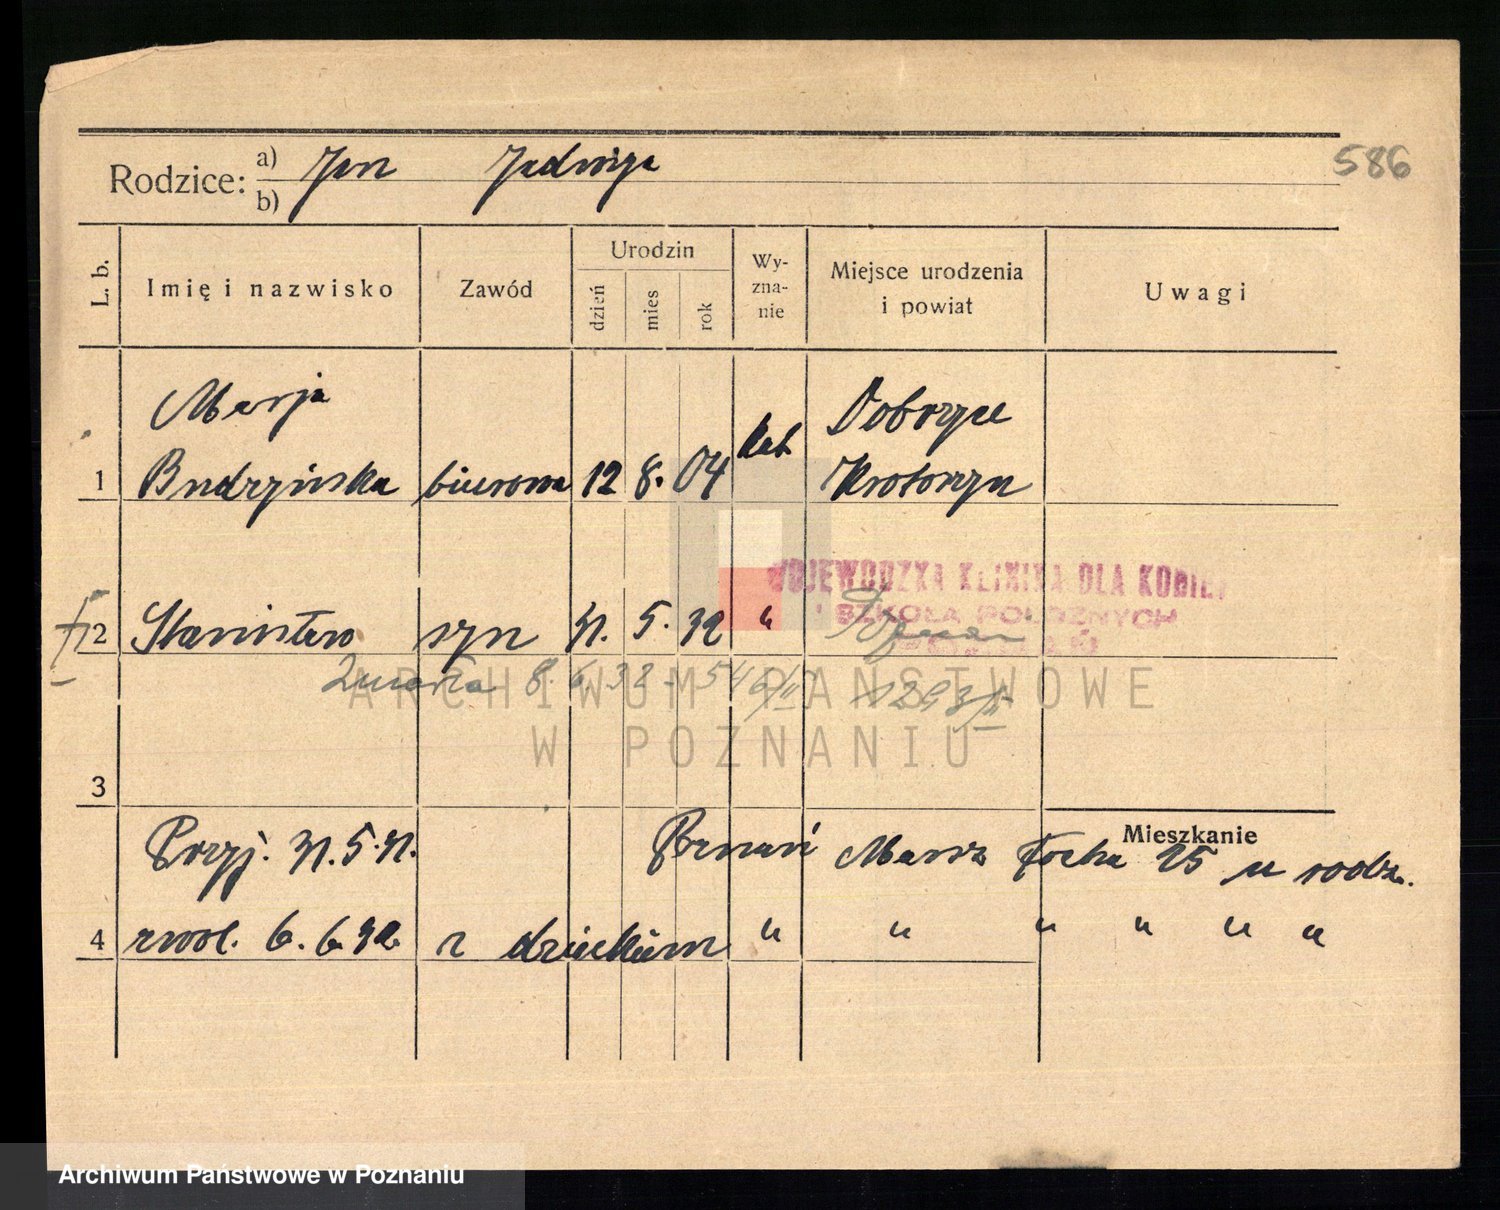 586
Rodzice: a) Jan Jadwiga
b)
L. b.
Imię i nazwisko
Zawód
Urodzin
dzień
mies
rok
Wy-
zna-
nie
Miejsce urodzenia
i powiat
Uwagi
Marja
Dobrzyce
kat
1 Budzyńska biurowa 12 8. 04 Krotoszyn
WOJEWÓDZKA KLINIKA DLA KOBIET
I SZKOŁA POŁOŻNYCH
POZNAŃ
2 Stanisław syn 31. 5. 32 " Poznań
8. 6. 32
ARCHIWUM PAŃSTWOWE
W POZNANIU
3
Mieszkanie
Przyj. 31.5.31. Poznań Marsz Focha 25 u rodz.
4 zwol. 6. 6. 32. z dzieckiem " " " " " "
Archiwum Państwowe w Poznaniu